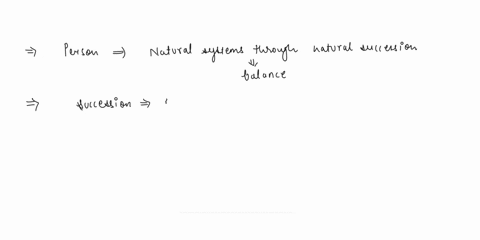 ⇒ Person ⇒ Natural systems through natural succession
⇓
balance
⇒ succession ⇒